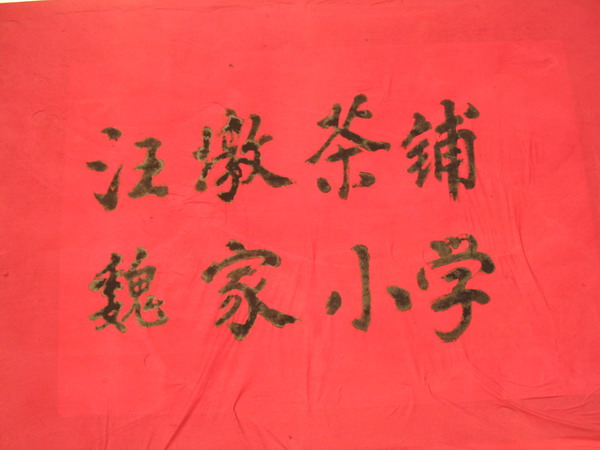 汪墩茶铺
魏家小学